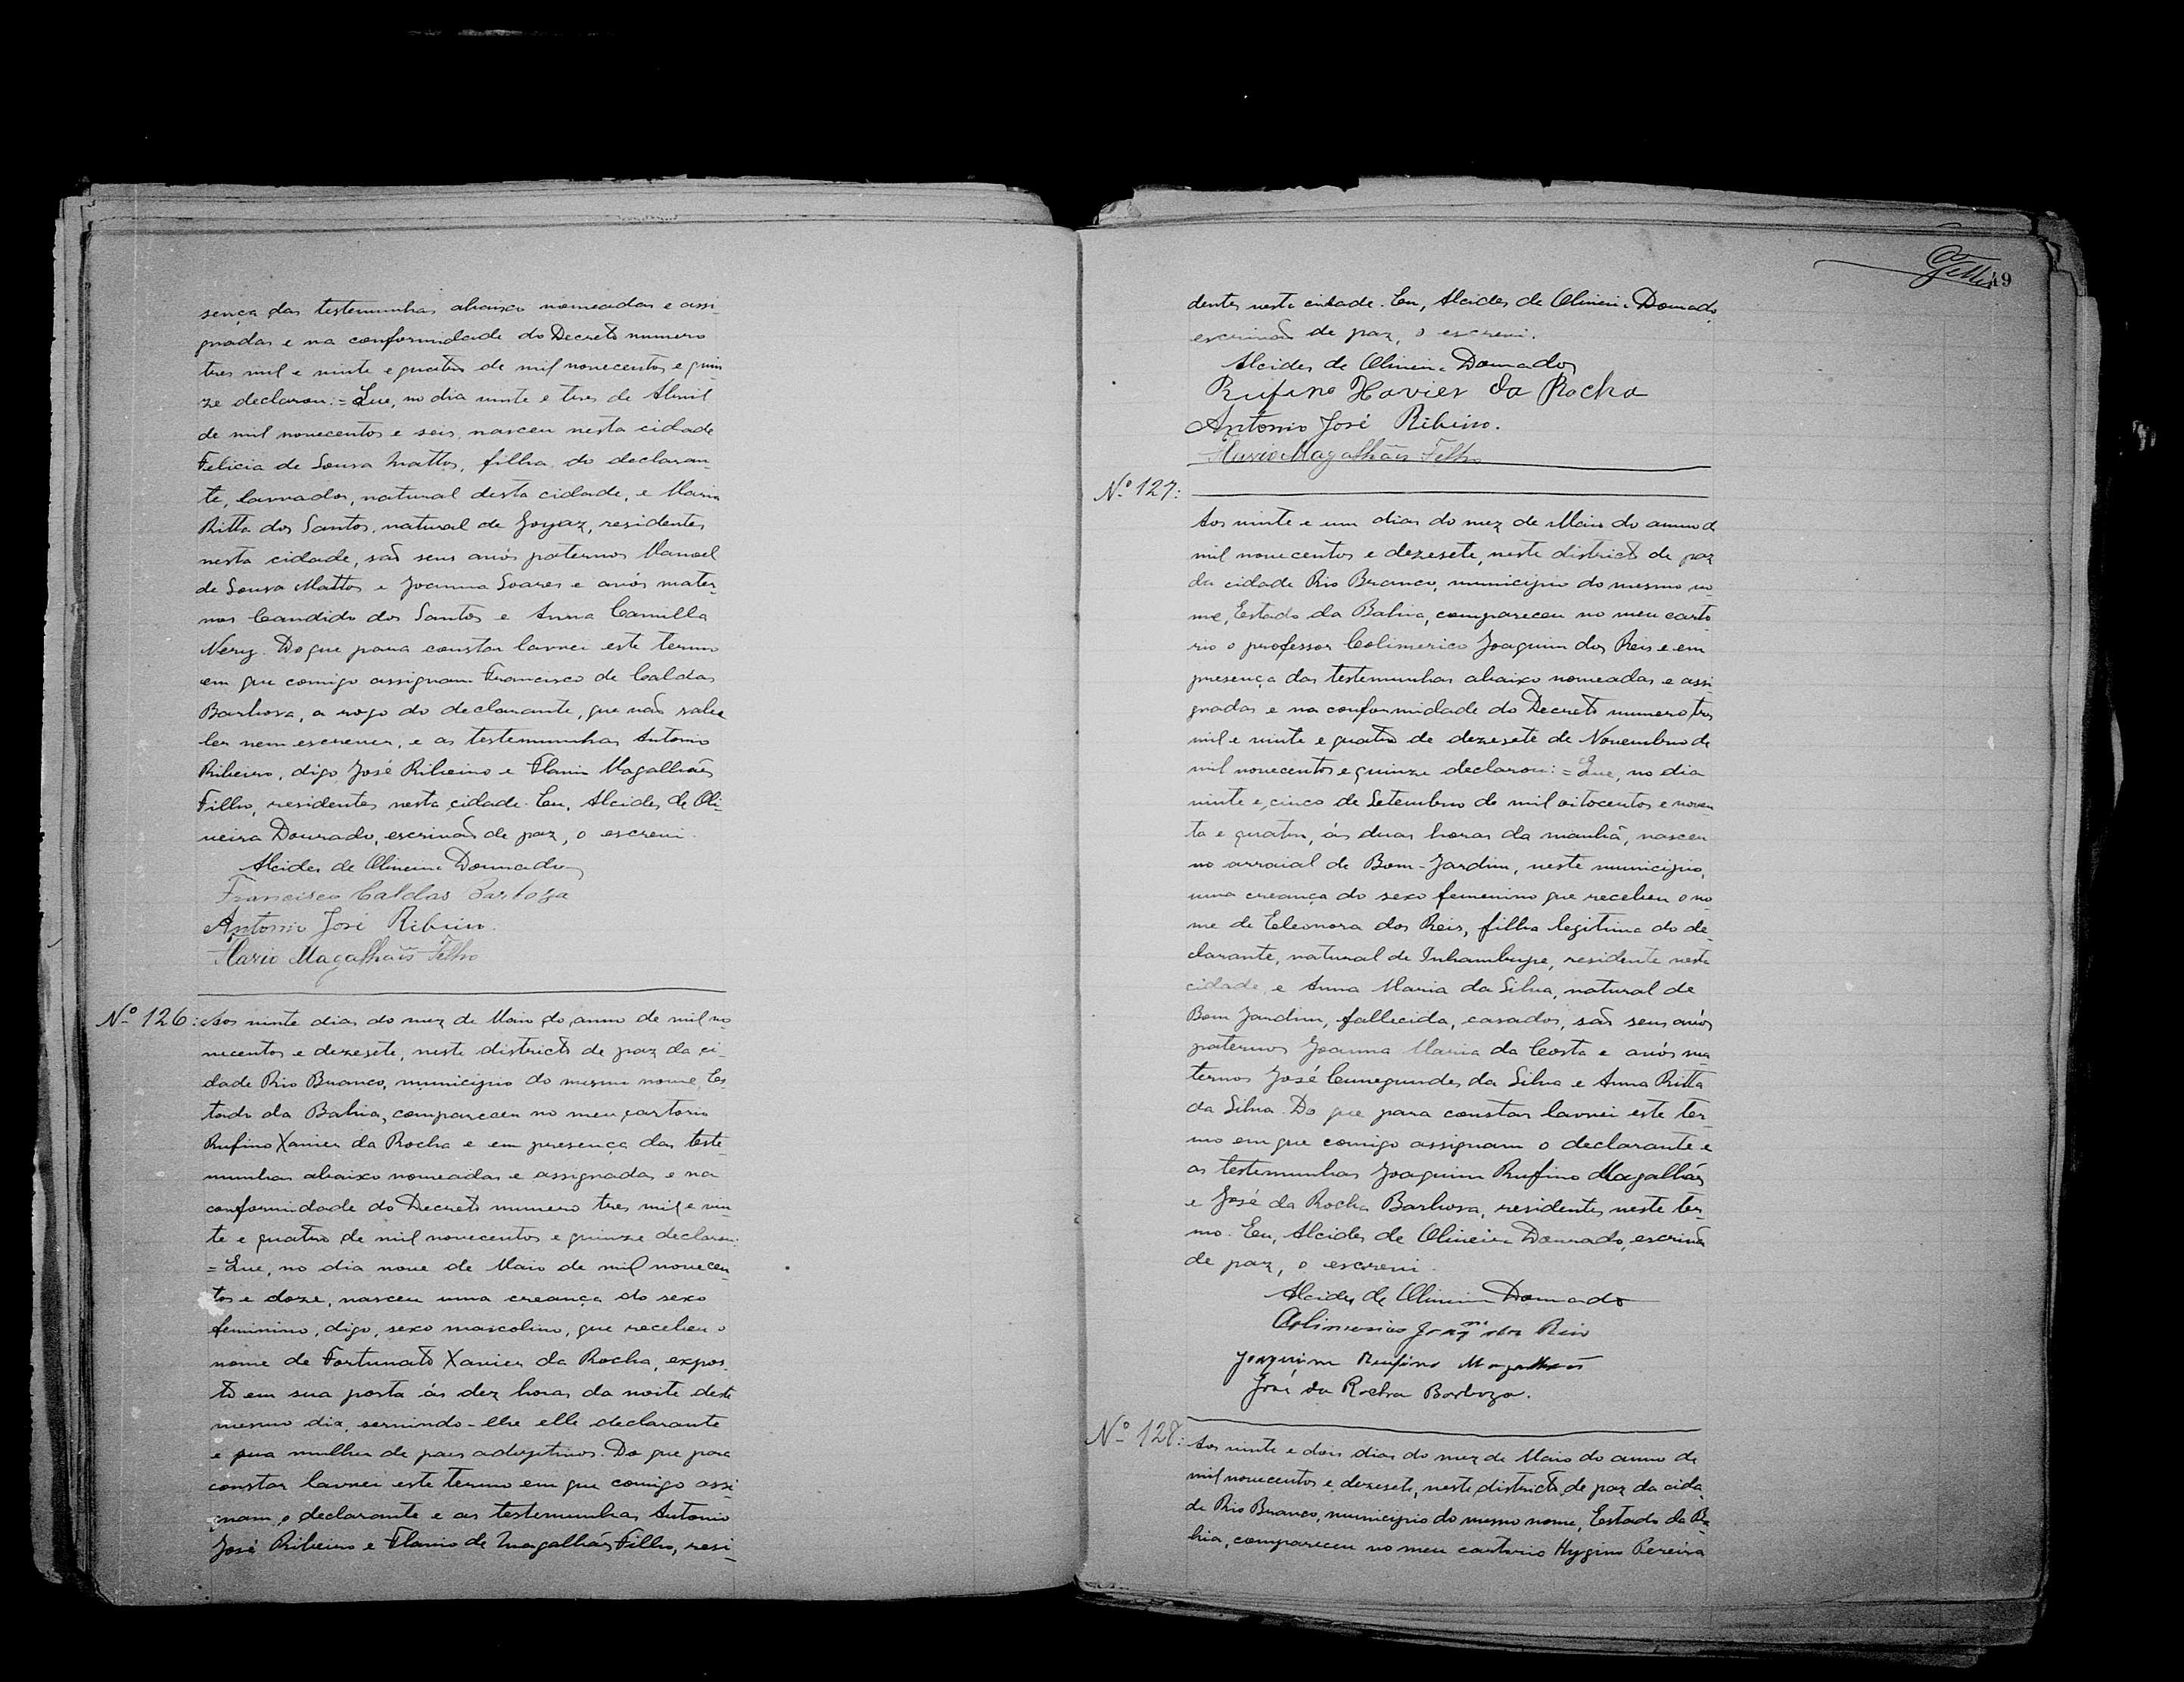 sença das testemunhas abaixo nomeadas e assi-
gnadas e na conformidade do Decreto numero
tres mil e vinte e quatro de mil novecentos e quin
ze declarou: = Que, no dia vinte e tres de Abril
de mil novecentos e seis, nasceu nesta cidade
Felicia de Sousa Mattos, filha do declaran-
te, lavrador, natural desta cidade, e Maria
Ritta dos Santos, natural de Goyaz, residentes
nesta cidade, são seus avós paternos Manoel
de Sousa Mattos e Joanna Soares e avós mater-
nos Candido dos Santos e Anna Camilla
Nery. Do que para constar lavrei este termo
em que comigo assignam Francisco de Caldas
Barbosa, a rogo do declarante, que não sabe
ler nem escrever, e as testemunhas Antonio
Ribeiro, digo, José Ribeiro e Flavio Magalhães
Filho, residentes nesta cidade. Eu, Alcides de Oli-
veira Dourado, escrivão de paz, o escrevi.
Alcides de Oliveira Dourado
Francisco Caldas Barboza
Antonio José Ribeiro.
Flavio Magalhães Filho
Nº 126: Aos vinte dias do mez de Maio do anno de mil no
vecentos e dezesete, neste districto de paz da ci-
dade Rio Branco, municipio do mesmo nome, Es-
tado da Bahia, compareceu no meu cartorio
Rufino Xavier da Rocha e em presença das teste
munhas abaixo nomeadas e assignadas e na
conformidade do Decreto numero tres mil e vin-
te e quatro de mil novecentos e quinze declarou:
= Que, no dia nove de Maio de mil novecen-
tos e doze, nasceu uma creança do sexo
feminino, digo, sexo mascolino, que recebeu o
nome de Fortunato Xavier da Rocha, expos-
to em sua porta ás dez horas da noite deste
mesmo dia, servindo-lhe elle declarante
e sua mulher de paes adoptivos. Do que para
constar lavrei este termo em que comigo assi-
gnam o declarante e as testemunhas Antonio
José Ribeiro e Flavio de Magalhães Filho, resi-
49
dentes nesta cidade. Eu, Alcides de Oliveira Dourado,
escrivão de paz, o escrevi.
Alcides de Oliveira Dourado
Rufino Xavier da Rocha
Antonio José Ribeiro.
Flavio Magalhães Filho
Nº 127:
Aos vinte e um dias do mez de Maio do anno d
mil novecentos e dezesete, neste districto de paz
da cidade Rio Branco, municipio do mesmo no-
me, Estado da Bahia, compareceu no meu carto
rio o professor Colimerico Joaquim dos Reis e em
presença das testemunhas abaixo nomeadas e assi-
gnadas e na conformidade do Decreto numero tres
mil e vinte e quatro de dezesete de Novembro de
mil novecentos e quinze declarou: = Que, no dia
vinte e cinco de Setembro de mil oitocentos e noven
ta e quatro, ás duas horas da manhã, nasceu
no arraial de Bom-Jardim, neste municipio,
uma creança do sexo femenino que recebeu o no-
me de Eleonora dos Reis, filha legitima do de-
clarante, natural de Inhambupe, residente nesta
cidade, e Anna Maria da Silva, natural de
Bom Jardim, fallecida, casados, são seus avós
paternos Joanna Maria da Costa e avós ma
ternos José Cunegundes da Silva e Anna Ritta
da Silva. Do que para constar lavrei este ter-
mo em que comigo assignam o declarante e
as testemunhas Joaquim Rufino Magalhães
e José da Rocha Barbosa, residentes neste ter-
mo. Eu, Alcides de Oliveira Dourado, escrivão
de paz, o escrevi.
Alcides de Oliveira Dourado
Colimerico Joaqm dos Reis
Joaquim Rufino Magalhães
José da Rocha Barboza.
Nº 128: Aos vinte e dois dias do mez de Maio do anno de
mil novecentos e dezesete, neste districto de paz da cida-
de Rio Branco, municipio do mesmo nome, Estado da Ba-
hia, compareceu no meu cartorio Hygino Pereira